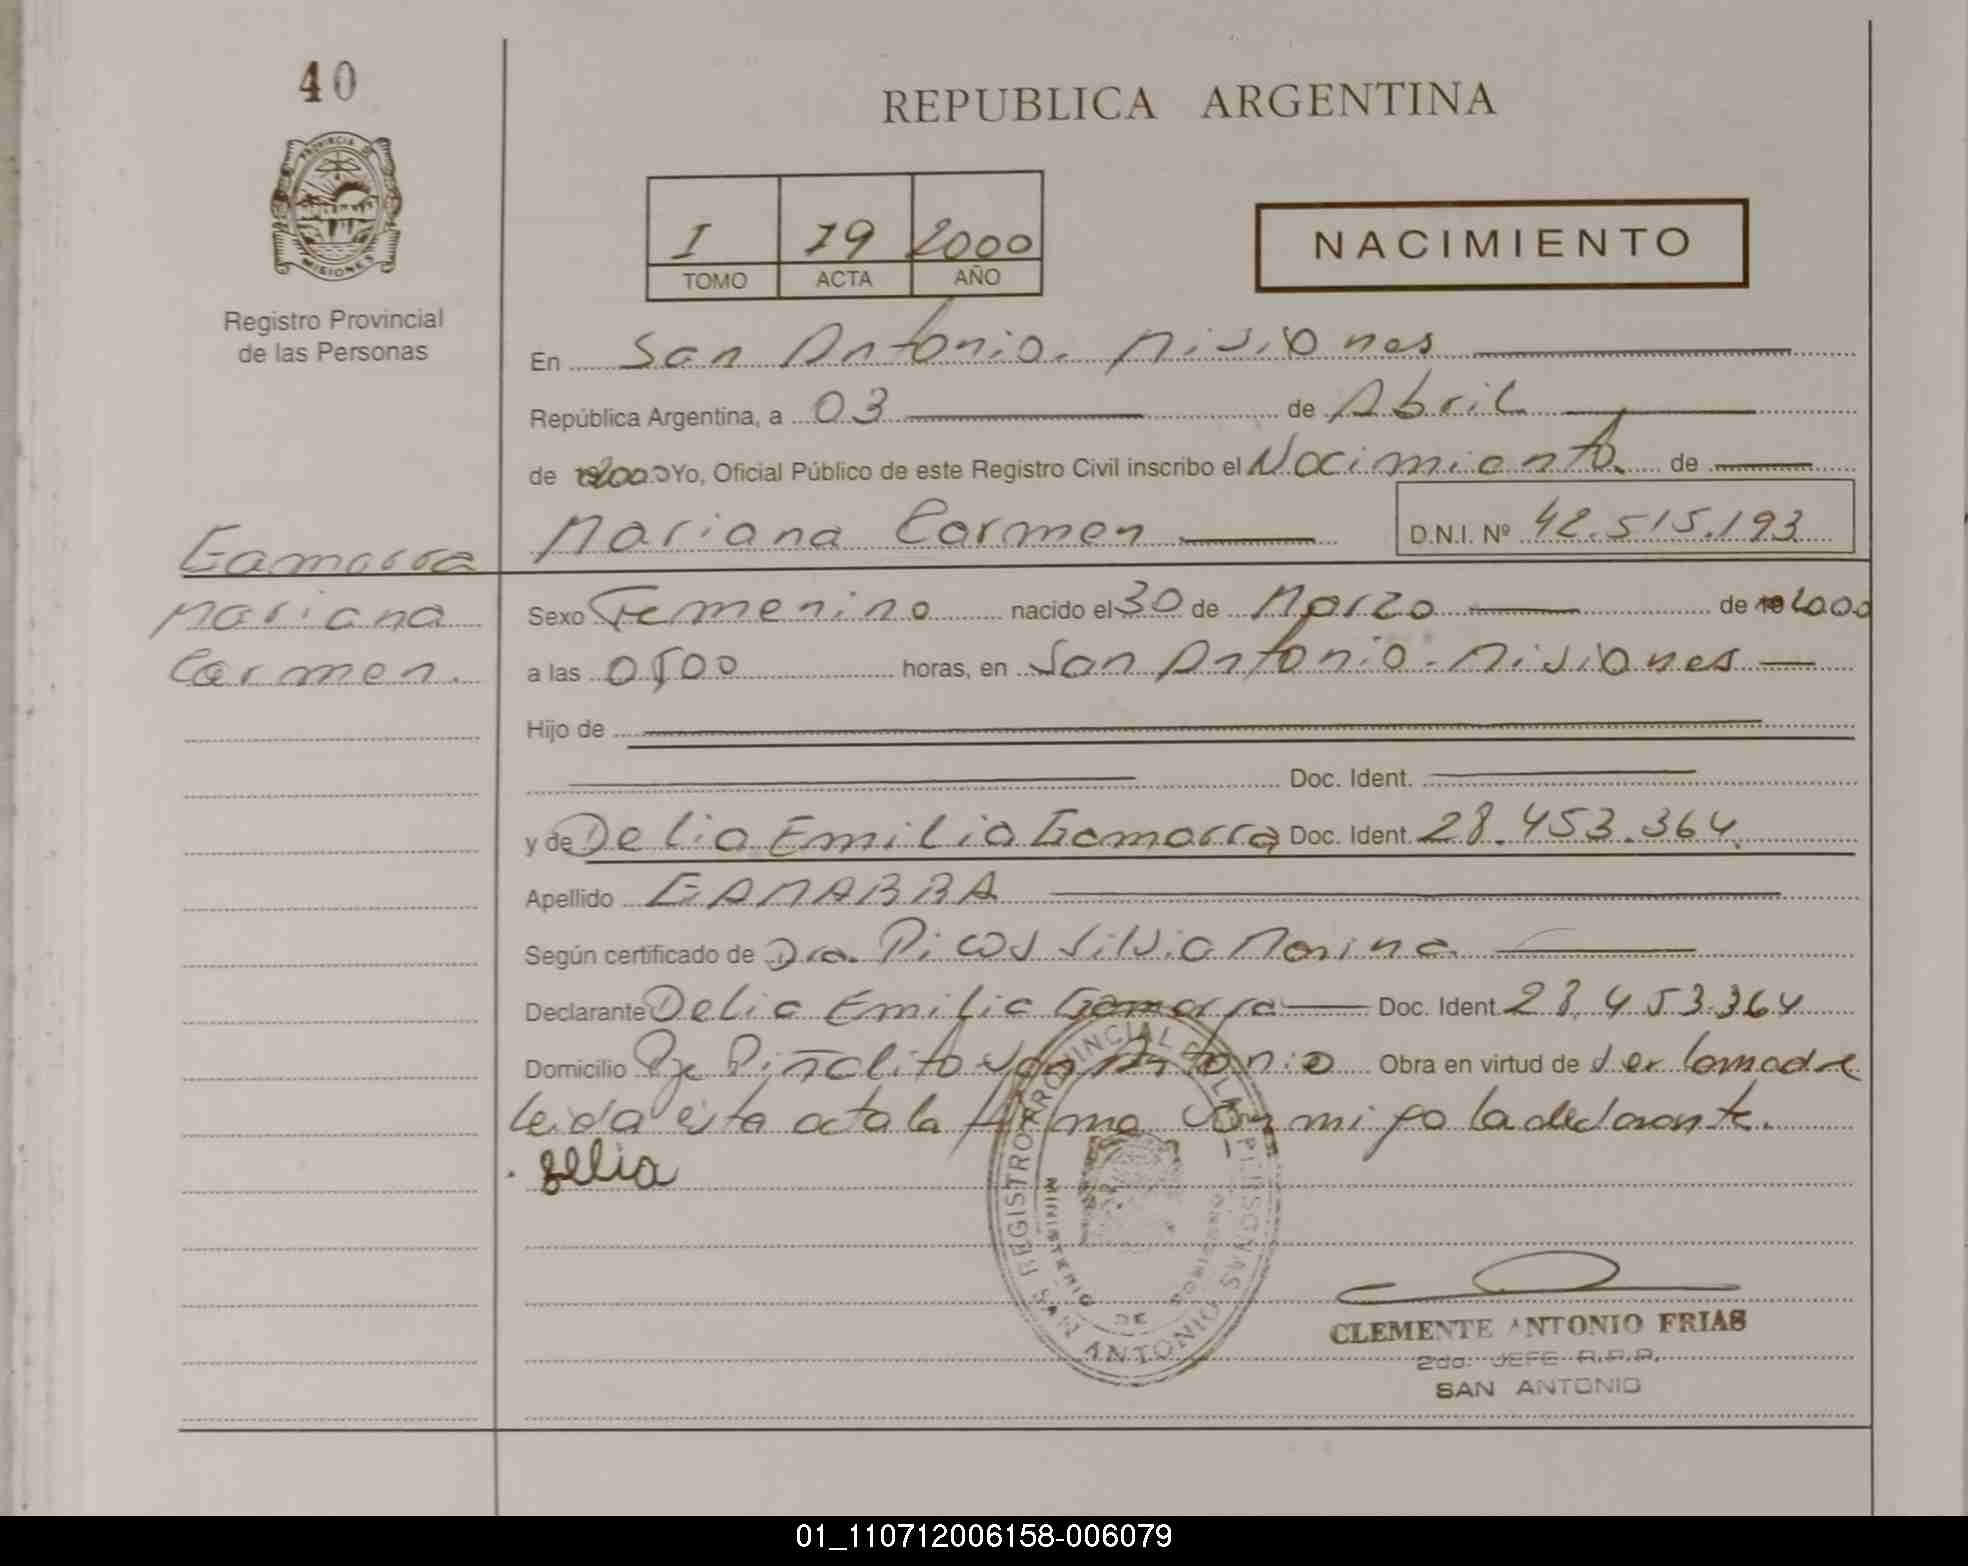 40
REPUBLICA ARGENTINA
PROVINCIA DE
MISIONES
Registro Provincial
de las Personas
I 79 2000
TOMO ACTA AÑO
NACIMIENTO
En San Antonio. Misiones
República Argentina, a 03 de Abril
de 2000 Yo, Oficial Público de este Registro Civil inscribo el Nacimiento. de
Mariana Carmen D.N.I. Nº 42.515.193
Gamarra
Mariana
Carmen.
Sexo Femenino nacido el 30 de Marzo de 2000
a las 0500 horas, en San Antonio - Misiones
Hijo de
Doc. Ident.
y de Delia Emilia Gamarra Doc. Ident. 28.453.364
Apellido GAMARRA
Según certificado de Dra. Picos Silvia Marina
Declarante Delia Emilia Gamarra Doc. Ident. 28.453.364
Domicilio Pje Piñalito San Antonio Obra en virtud de ser la madre
leida esta acta la firma con migo la declarante.
delia
REGISTRO PROVINCIAL DE LAS PERSONAS
MINISTERIO DE GOBIERNO
SAN ANTONIO
CLEMENTE ANTONIO FRIAS
2do. JEFE R.P.P.
SAN ANTONIO
01_110712006158-006079